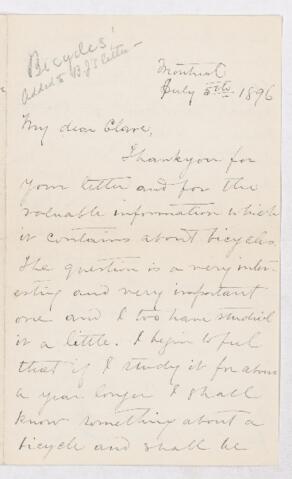 Bicycles!
Added to B.J's letter -
Montreal
July 5th 1896
My dear Clare,
Thankyou for
your letter and for the
valuable information which
it contains about bicycles.
The question is a very inter-
esting and very important
one and I too have studied
it a little. I begin to feel
that if I study it for about
a year longer I shall
know something about a
bicycle and shall be